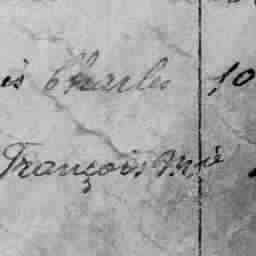 is Charles 10
François Mie